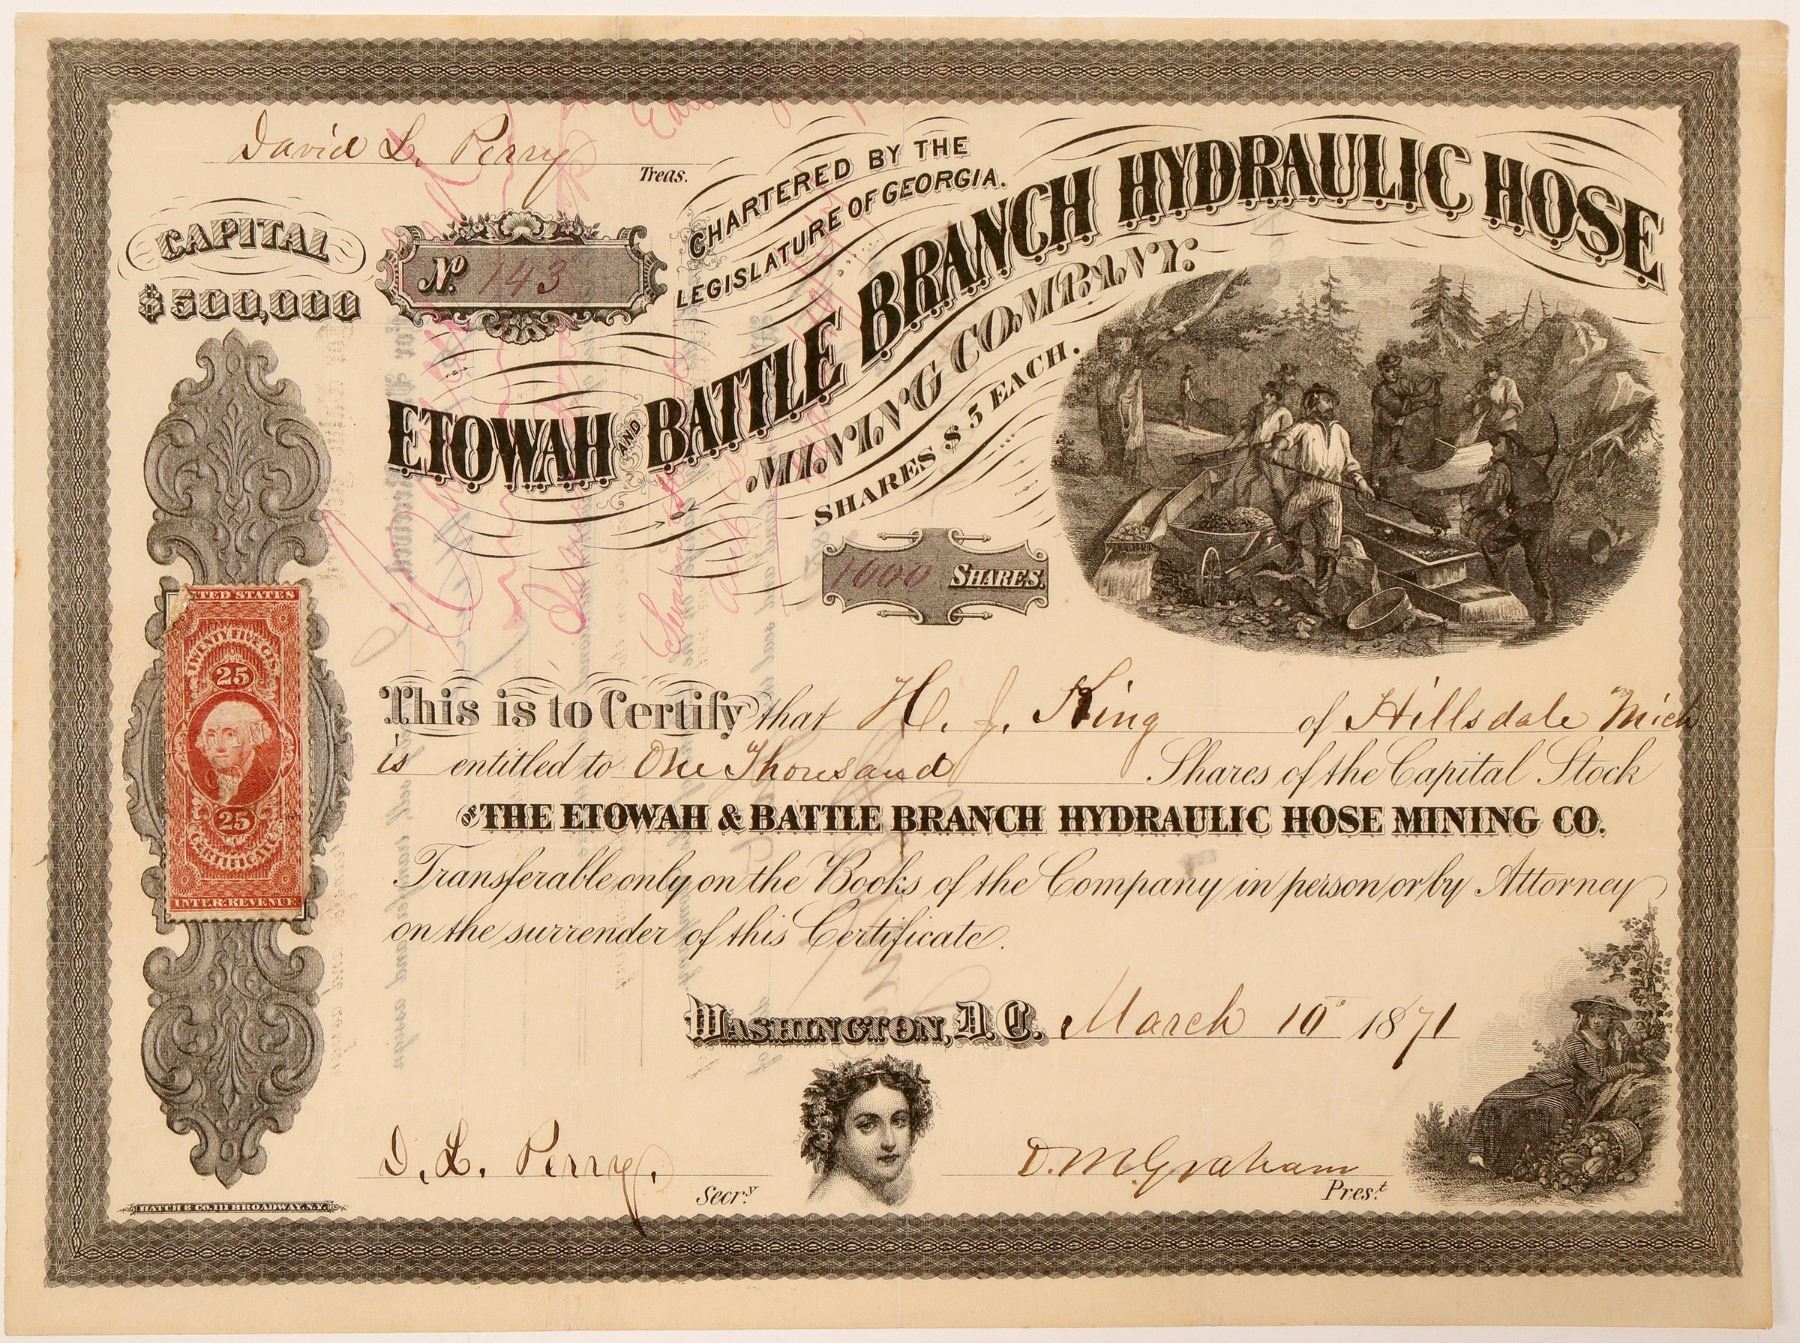 David L. Perry
Treas.
CAPITAL
$500,000
No. 143
CHARTERED BY THE
LEGISLATURE OF GEORGIA.
ETOWAH AND BATTLE BRANCH HYDRAULIC HOSE
MINING COMPANY.
SHARES $5 EACH.
1000 SHARES
TED STATES
TWENTY FIVE CTS.
25
25
CERTIFICATE
INTER. REVENUE
This is to Certify that H. J. King of Hillsdale Mich
is entitled to One Thousand Shares of the Capital Stock
OF THE ETOWAH & BATTLE BRANCH HYDRAULIC HOSE MINING CO.
Transferable only on the Books of the Company in person or by Attorney
on the surrender of this Certificate.
WASHINGTON, D. C. March 10 1871
D. L. Perry. Secr.y
D. M. Graham Pres.t
HATCH & CO. 111 BROADWAY, N.Y.